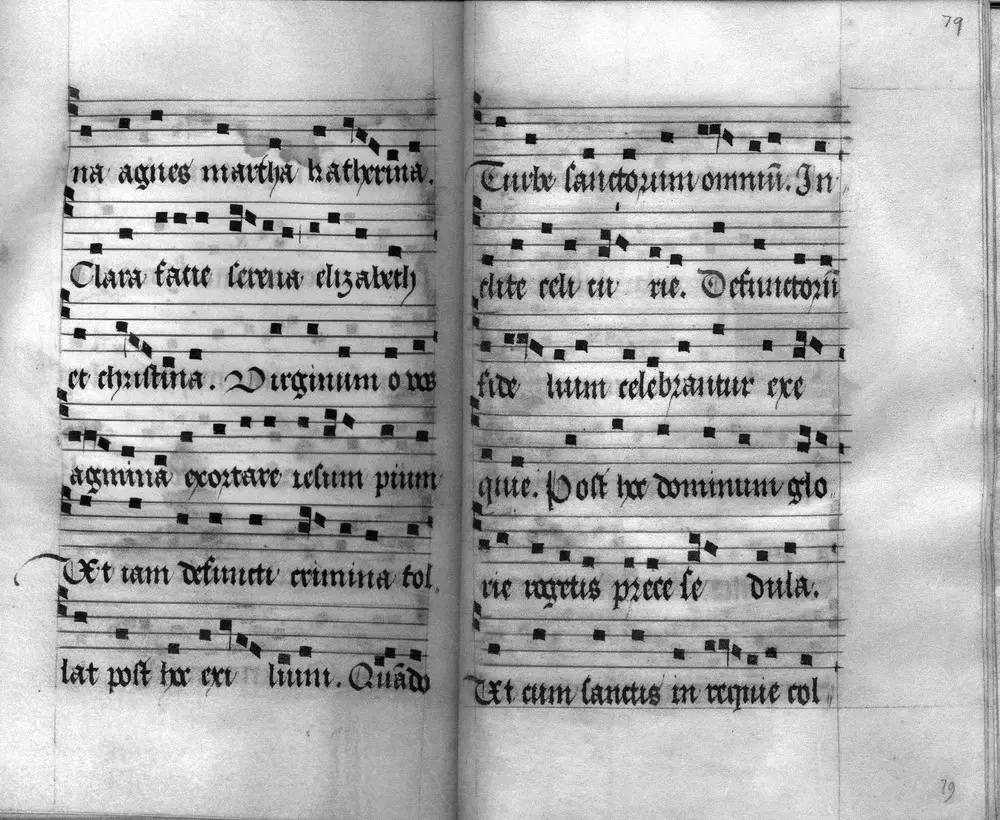 na agnes martha katherina.
Clara facie serena elizabeth
et christina. Virginum o vos
agmina exortare iesum pium
Ut iam defuncti crimina tol
lat post hoc exi lium. Quādo
79
Turbe sanctorum omniū. In
clite celi cu rie. Defunctorū
fide lium celebrantur exe
quie. Post hoc dominum glo
rie rogetis prece se dula.
Ut cum sanctis in requie col
79